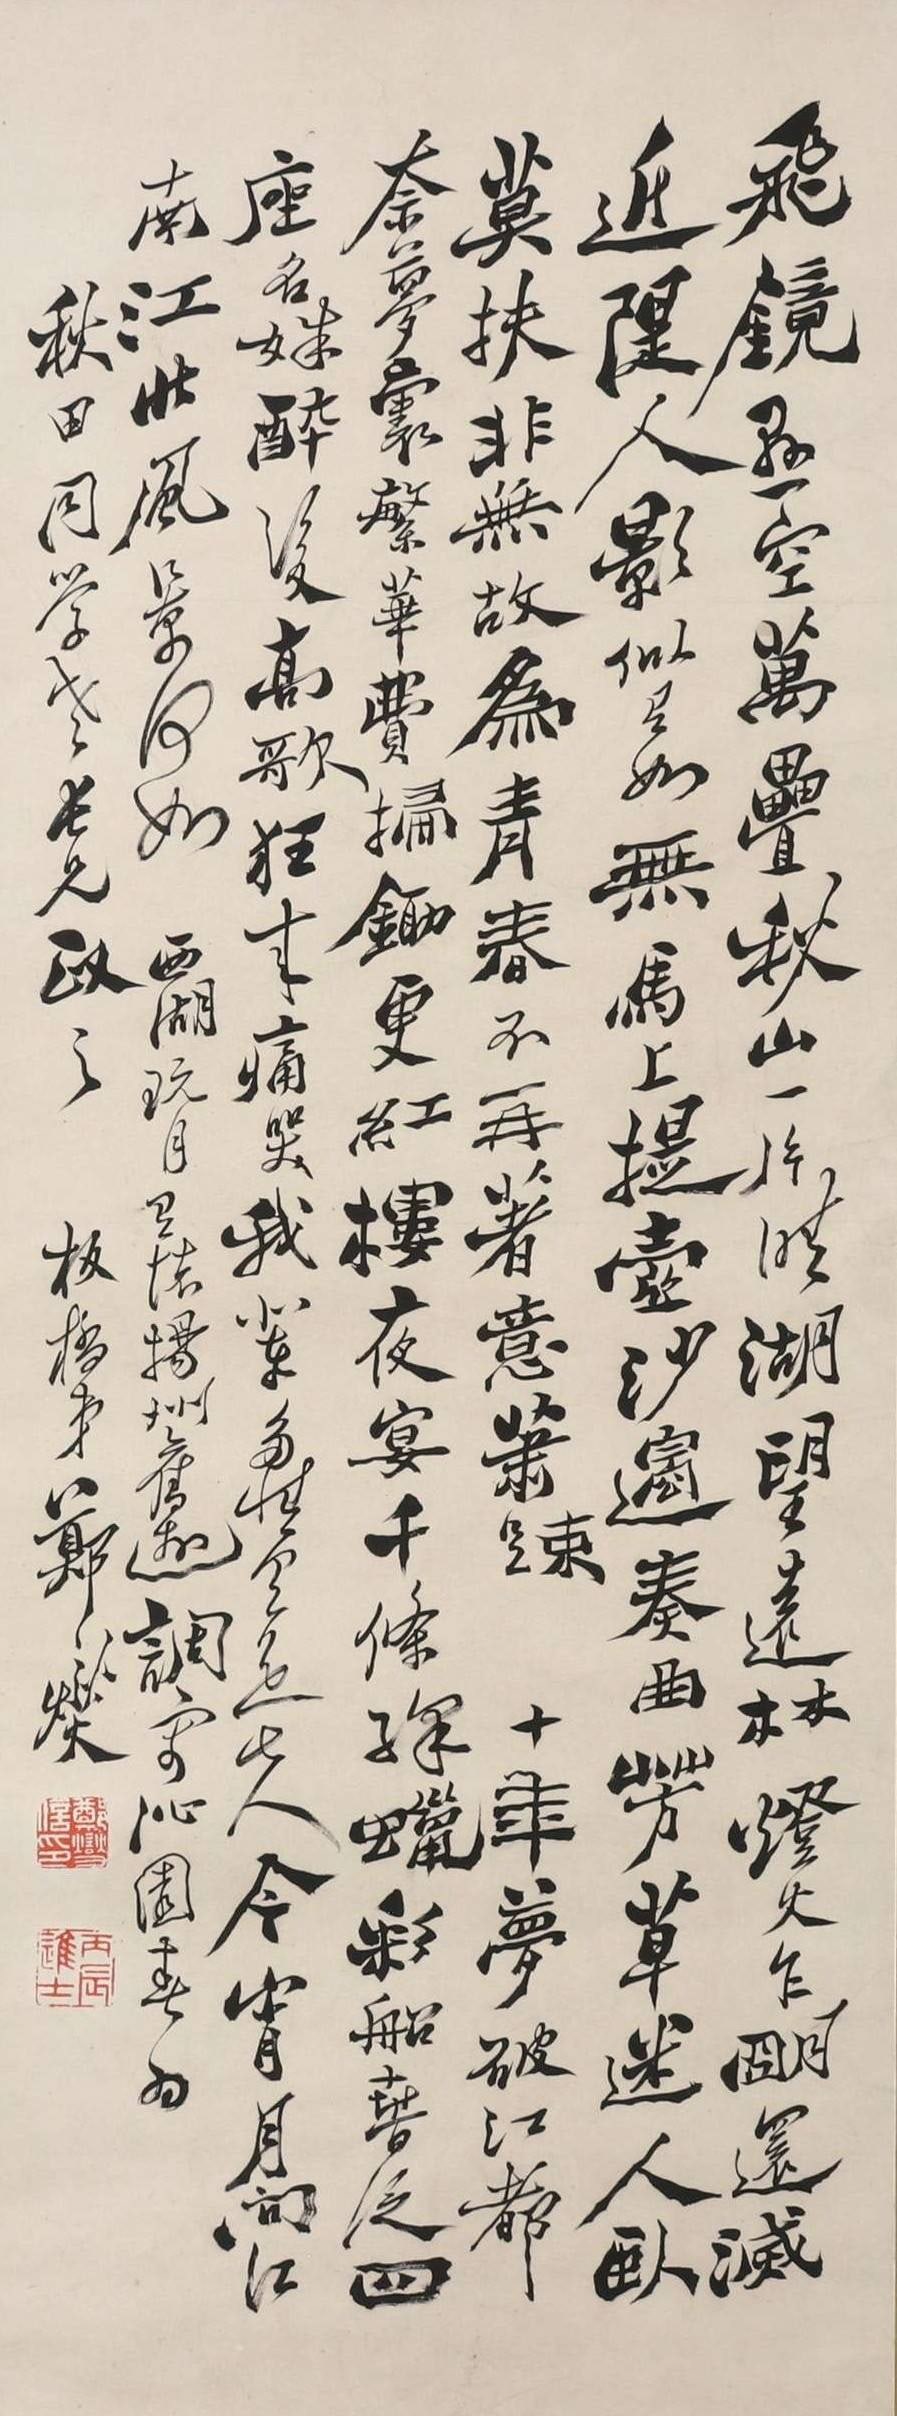 飛鏡懸空萬疊秋山一片晴湖望遠林燈火乍明還滅
近隄人影似有如無馬上提壺沙邊奏曲芳草迷人臥
莫扶非無故為青春不再著意蕭疎　十年夢破江都
奈夢裏繁華費掃鋤更紅樓夜宴千條絳蠟彩船春泛四
座名姝醉後高歌狂來痛哭我輩多情有是夫今宵月問江
南江北風景何如　西湖玩月有懷揚州舊遊調寄沁園春為
秋田同學老長兄政之　板橋弟鄭燮
鄭燮信印
丙辰進士